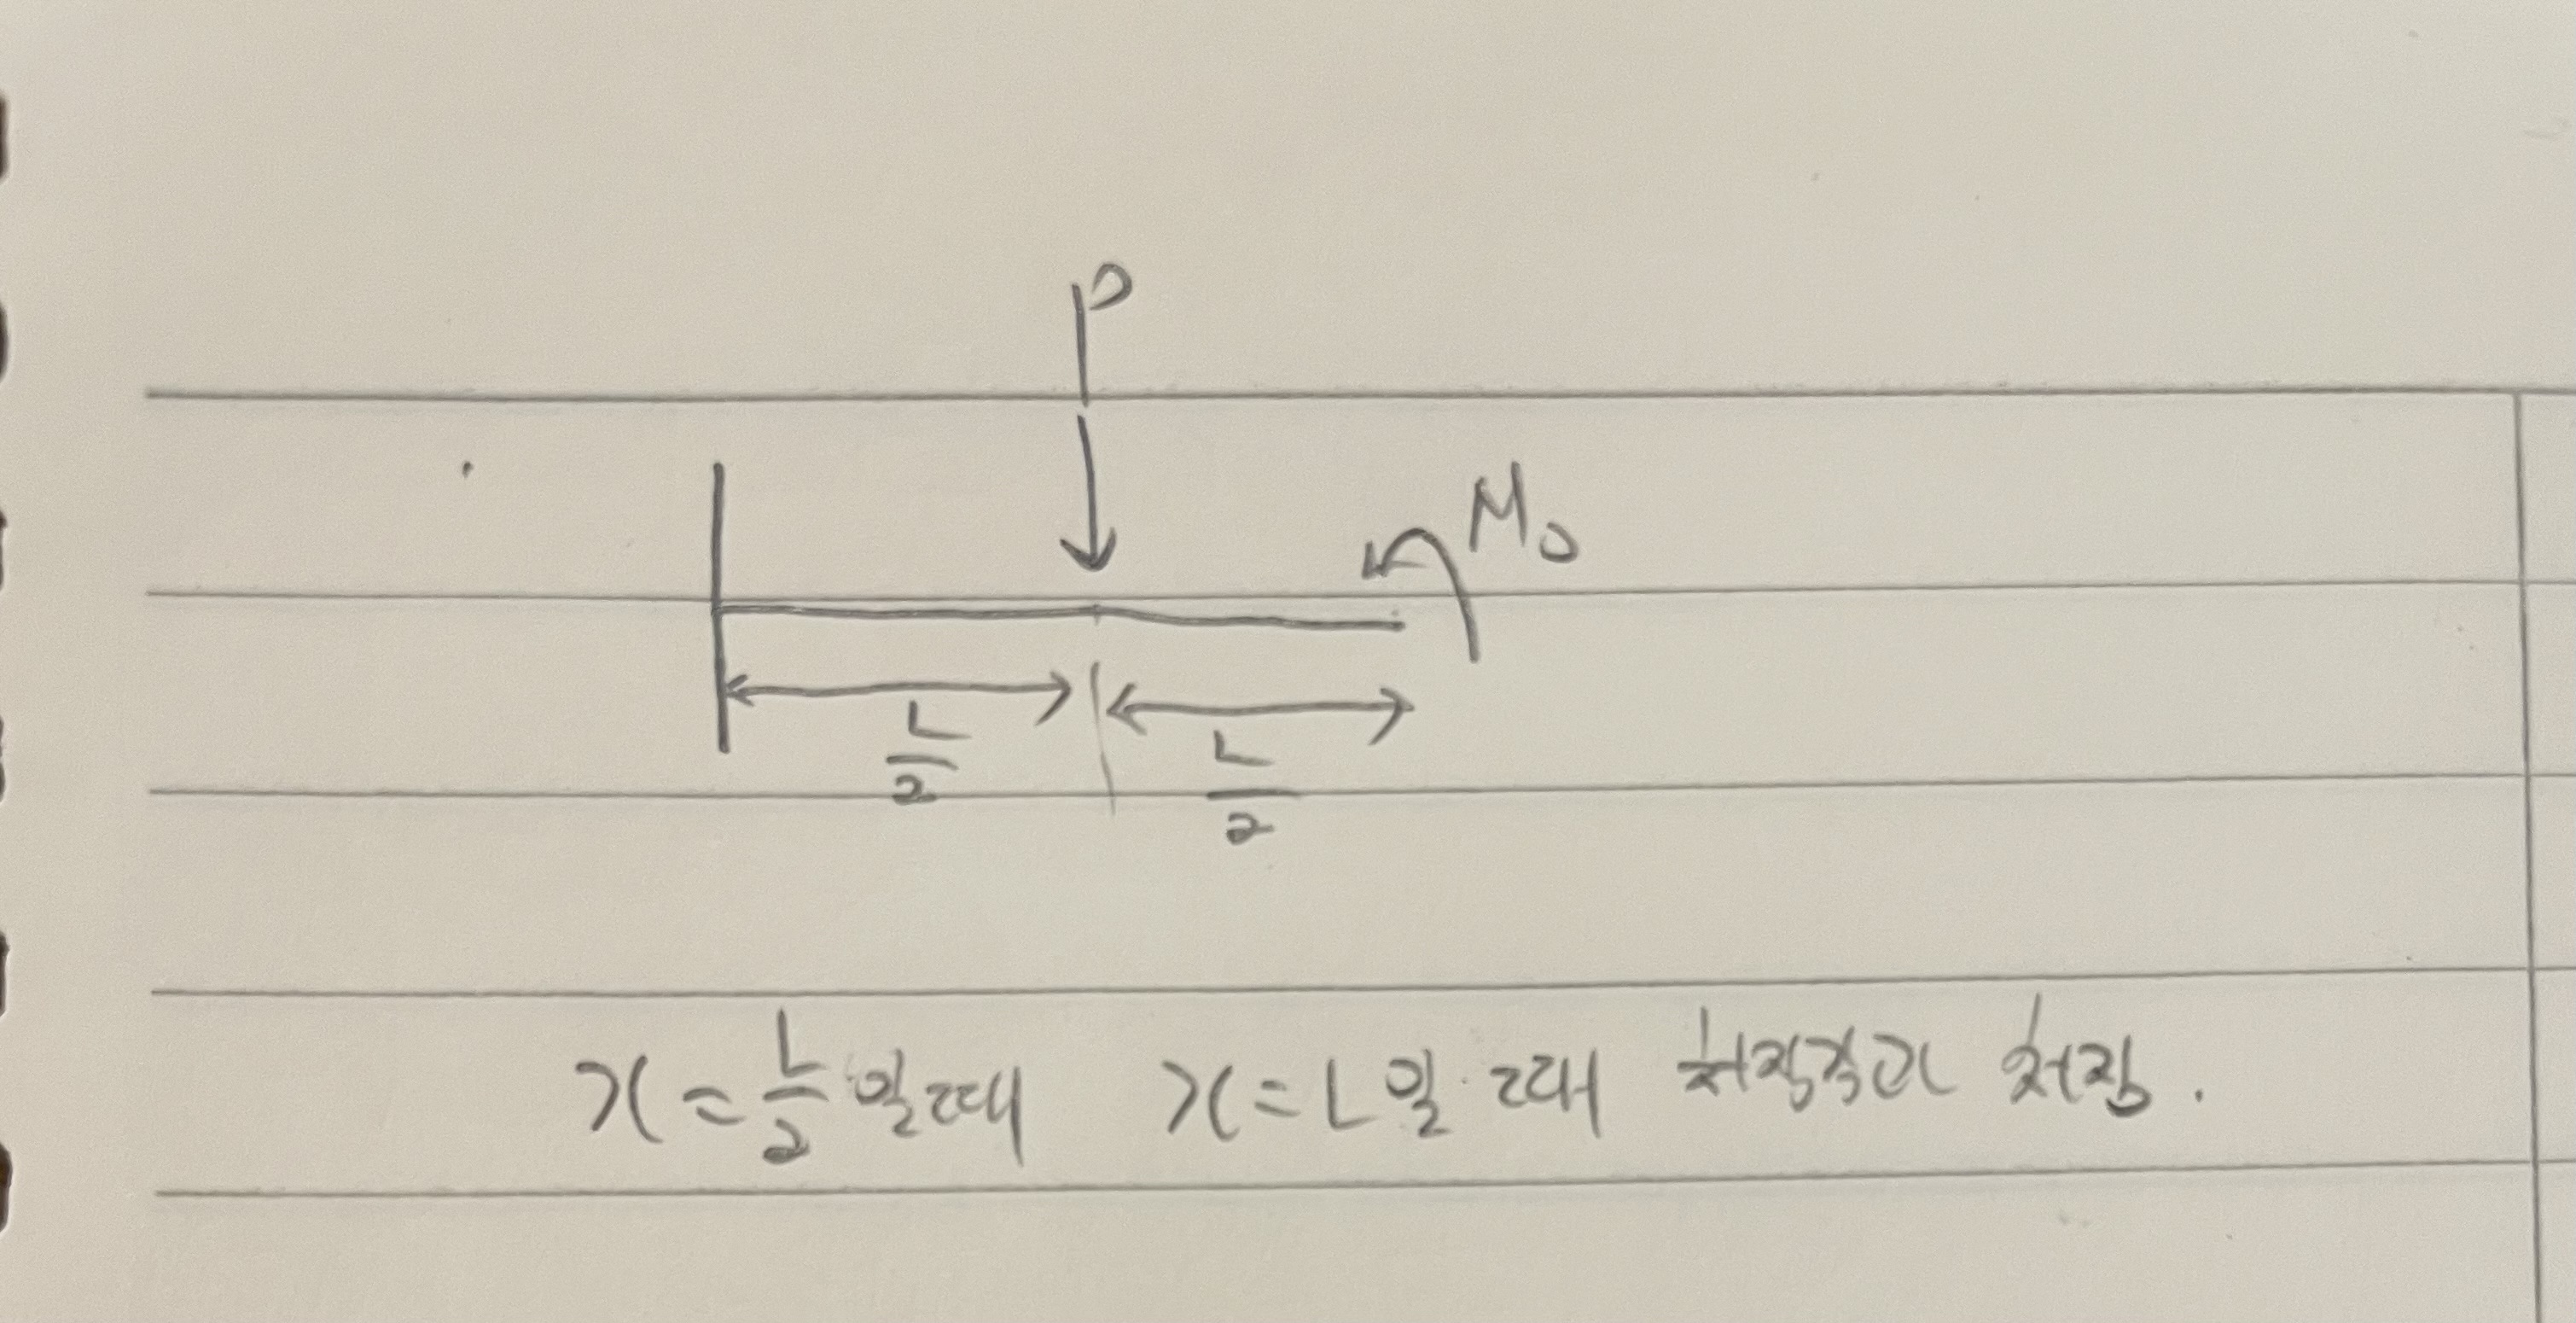 P
M₀
L/2
L/2
x = L/2 일 때 x = L 일 때 처짐각과 처짐.